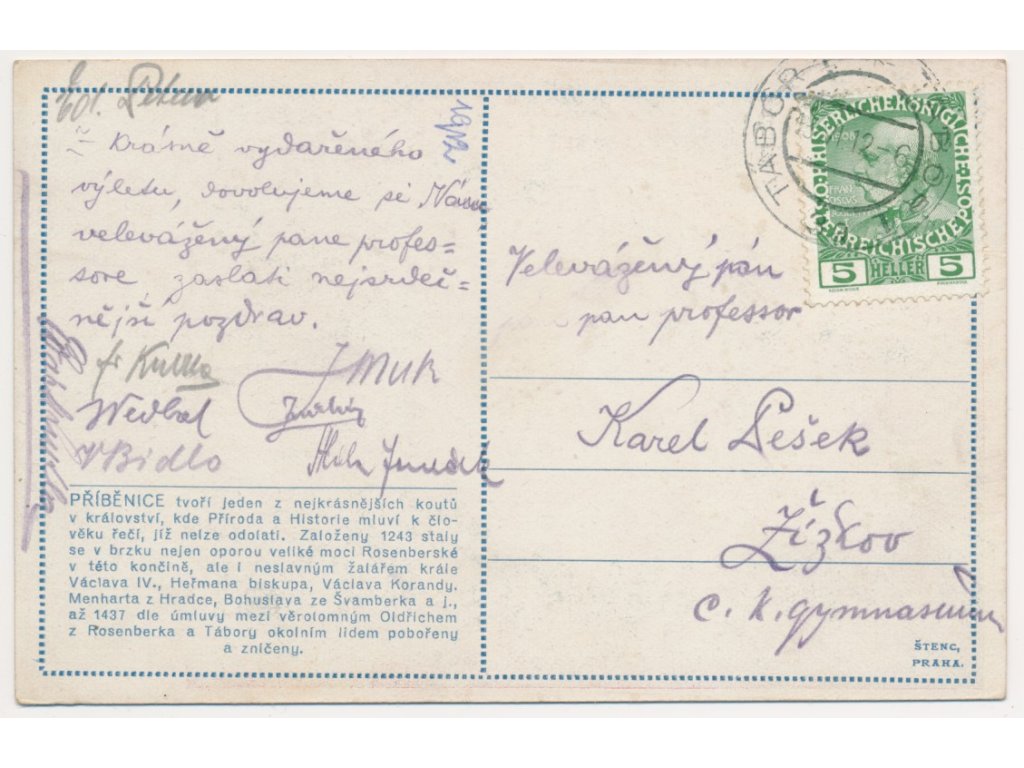 Z krásně vydařeného
výletu, dovolujeme se
velevážený pane profes=
sore zaslati nejsrdeč=
nější pozdrav.
fr Kulka
J Muk
Wedbal
V Bidlo
PŘÍBĚNICE tvoří jeden z nejkrásnějších koutů
v království, kde Příroda a Historie mluví k člo-
věku řečí, jíž nelze odolati. Založeny 1243 staly
se v brzku nejen oporou veliké moci Rosenberské
v této končině, ale i neslavným žalářem krále
Václava IV., Heřmana biskupa, Václava Korandy.
Menharta z Hradce, Bohuslava ze Švamberka a j.,
až 1437 dle úmluvy mezi věrolomným Oldřichem
z Rosenberka a Tábory okolním lidem pobořeny
a zničeny.
1912
TÁBOR
12-6
5 HELLER 5
Velevážený pán
pan professor
Karel Pešek
Žižkov
c. k. gymnasium
ŠTENC,
PRAHA.